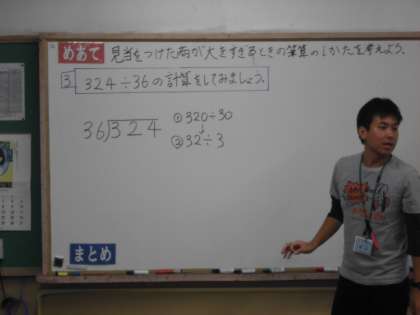 めあて 見当をつけた商が大きすぎるときの筆算のしかたを考えよう。
3 324÷36の計算をしてみましょう。
36)324
①320÷30
②32÷3
まとめ